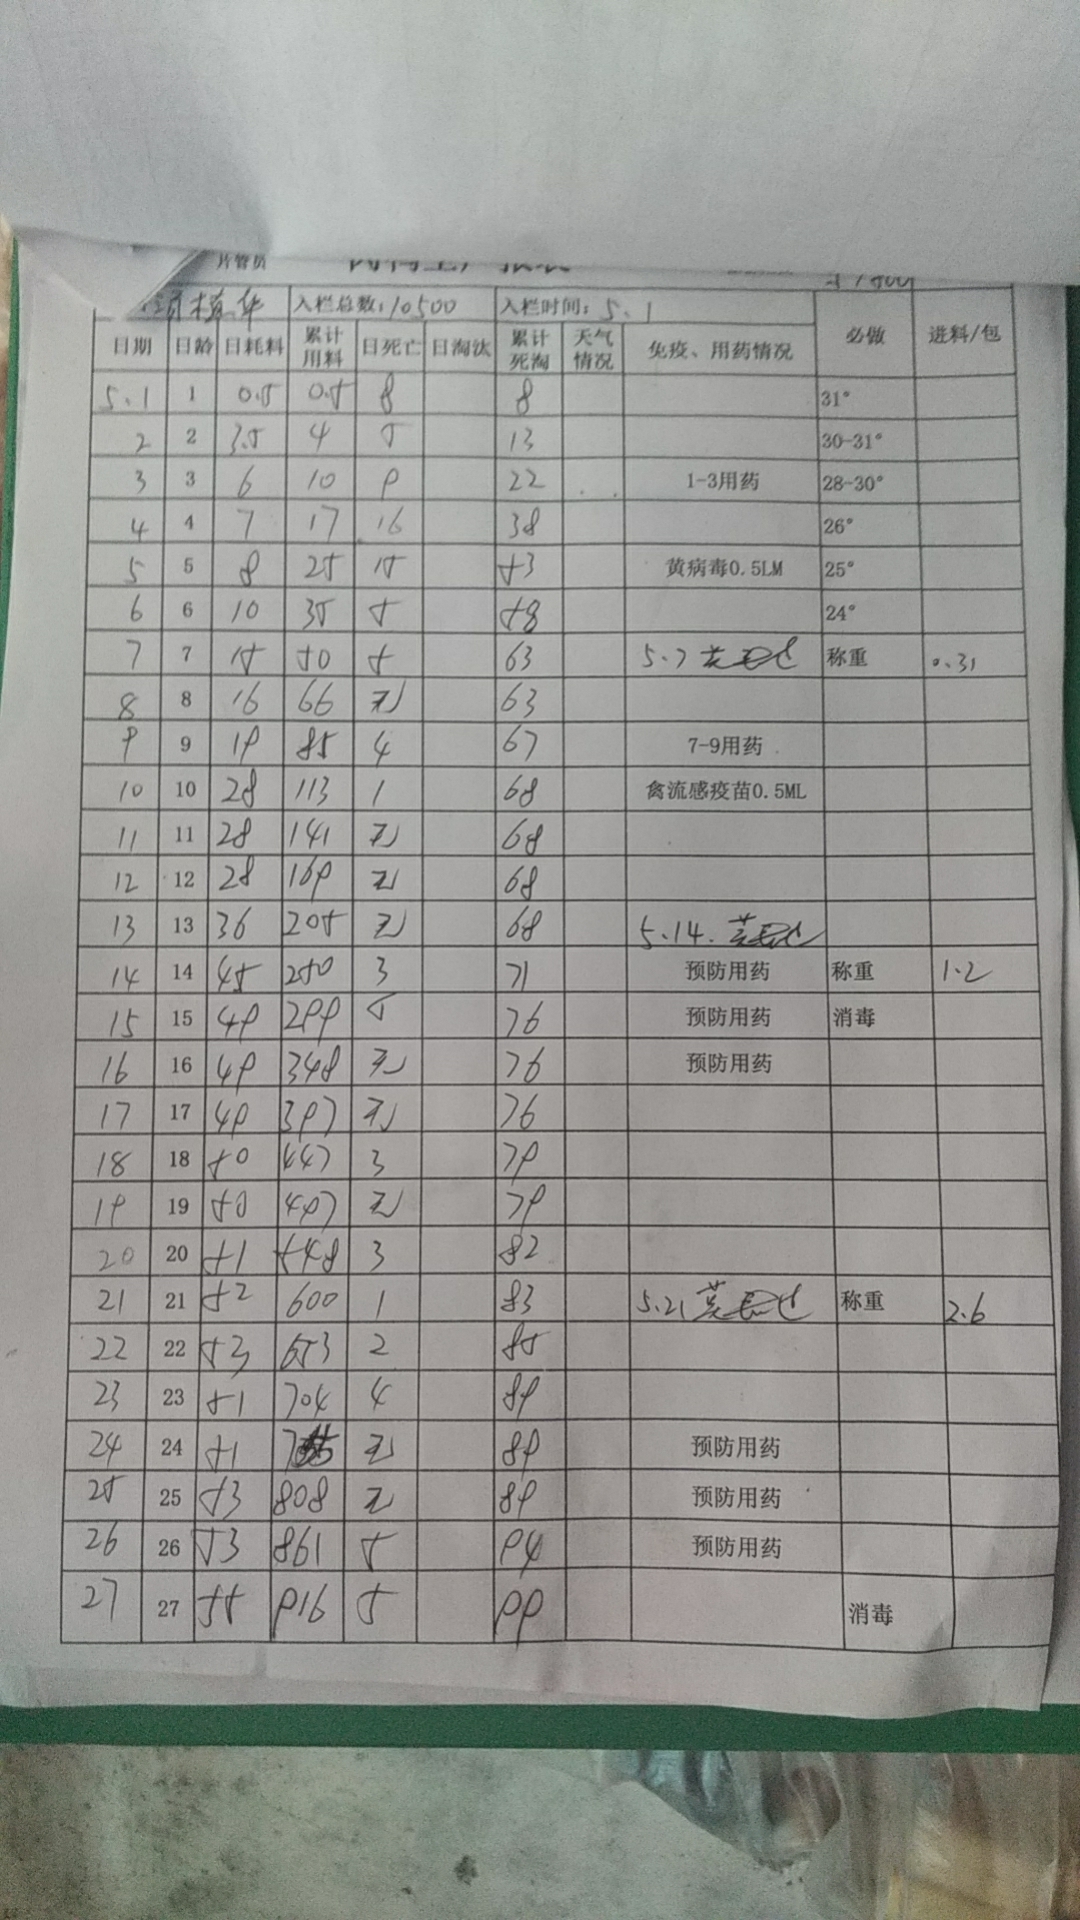 片管员
入栏总数:10500 入栏时间:5.1
日期 日龄 日耗料 累计用料 日死亡 日淘汰 累计死淘 天气情况 免疫、用药情况 必做 进料/包
5.1 1 0.5 0.5 8 8 31°
2 2 3.5 4 5 13 30-31°
3 3 6 10 9 22 1-3用药 28-30°
4 4 7 17 16 38 26°
5 5 8 25 15 53 黄病毒0.5LM 25°
6 6 10 35 5 58 24°
7 7 15 50 5 63 5.7 称重 0.31
8 8 16 66 无 63
9 9 19 85 4 67 7-9用药
10 10 28 113 1 68 禽流感疫苗0.5ML
11 11 28 141 无 68
12 12 28 169 无 68
13 13 36 205 无 68 5.14.
14 14 45 250 3 71 预防用药 称重 1.2
15 15 49 299 5 76 预防用药 消毒
16 16 49 348 无 76 预防用药
17 17 49 397 无 76
18 18 50 447 3 79
19 19 50 497 无 79
20 20 51 548 3 82
21 21 52 600 1 83 5.21 称重 2.6
22 22 53 653 2 85
23 23 51 704 4 89
24 24 51 无 89 预防用药
25 25 53 808 无 89 预防用药
26 26 53 861 5 94 预防用药
27 27 55 916 5 99 消毒